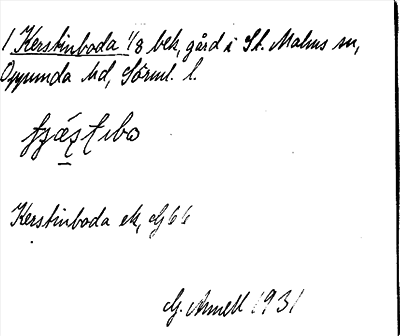 1 Kerstinboda 1/8 bek, gård i St. Malms sn,
Oppunda hd, Sörml. l.
Kerstinboda ek, Gj 66
G. Annell 1931